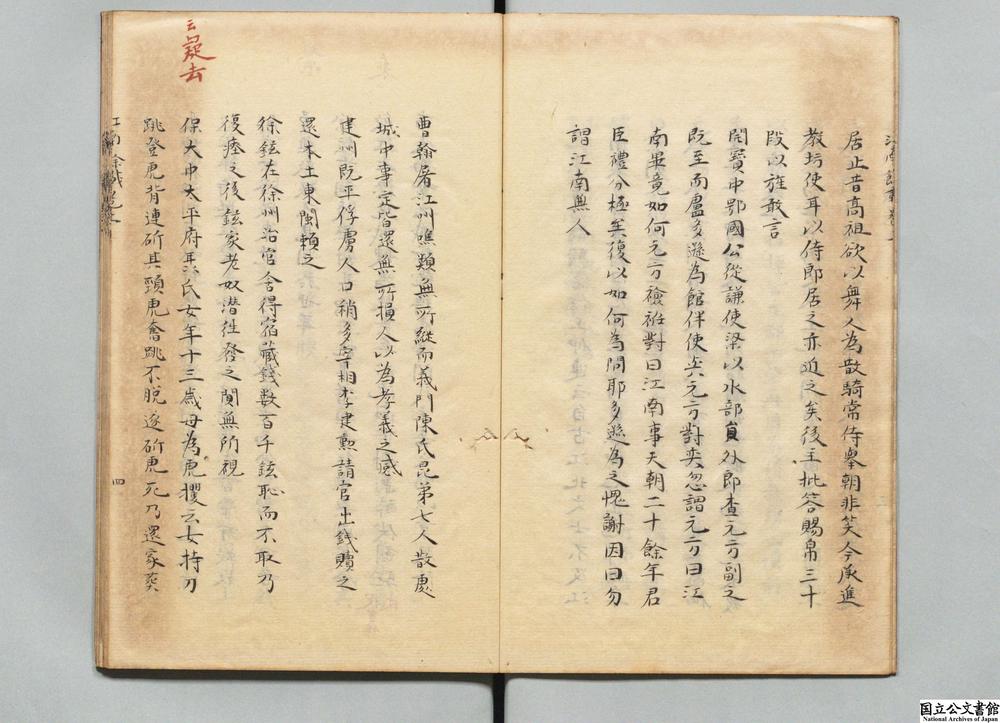 居止昔高祖欲以舞人為散騎常侍舉朝非笑今承進
教坊使耳以侍郎居之亦迫之矣後主批答賜帛三十
段以旌敢言
開寶中鄂國公從謙使梁以水部員外郎查元方副之
既至而盧多遜為館伴使奕元方對奕忽謂元方曰江
南畢竟如何元方襝袵對曰江南事天朝二十餘年君
臣禮分極矣復以如何為問耶多遜為之愧謝因曰勿
謂江南無人
曹翰屠江州噍類無所縱而義門陳氏昆弟七人散處
城中事定皆還無所損人以為孝義之感
建州既平俘虜人口稍多宰相李建勲請官出錢贖之
還本土東閩賴之
徐鉉在徐州治官舍得宿藏錢數百千鉉恥而不取乃
復瘞之後鉉家老奴潛往發之閴無所視
保大中太平府聂氏女年十三歲母為虎攫云女持刀
跳登虎背連斫其頸虎奮跳不脫遂斫虎死乃還家葬
云疑去
四
国立公文書館
National Archives of Japan